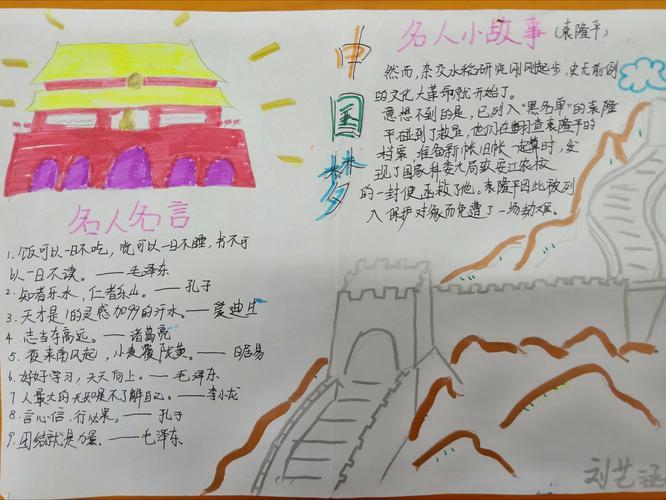 中国梦
名人小故事(袁隆平)
然而,杂交水稻研究刚刚起步,史无前例
的文化大革命就开始了。
意想不到的是,已列入"黑名单"的袁隆
平碰到了救星,他们在翻查袁隆平的
档案,准备新帐旧帐一起算时,发
现了国家科委九局致安江农校
的一封便函救了他。袁隆平因此被列
入保护对象而免遭了一场劫难。
名人名言
1、饭可以一日不吃,觉可以一日不睡,书不可
以一日不读。——毛泽东
2、知者乐水,仁者乐山。——孔子
3、天才是1的灵感加99的汗水。——爱迪生
4、志当存高远。——诸葛亮
5、夜来南风起,小麦覆陇黄。——白居易
6、好好学习,天天向上。——毛泽东
7、人最大的无知是不了解自己。——李小龙
8、言必信,行必果。——孔子
9、团结就是力量。——毛泽东
刘艺涵